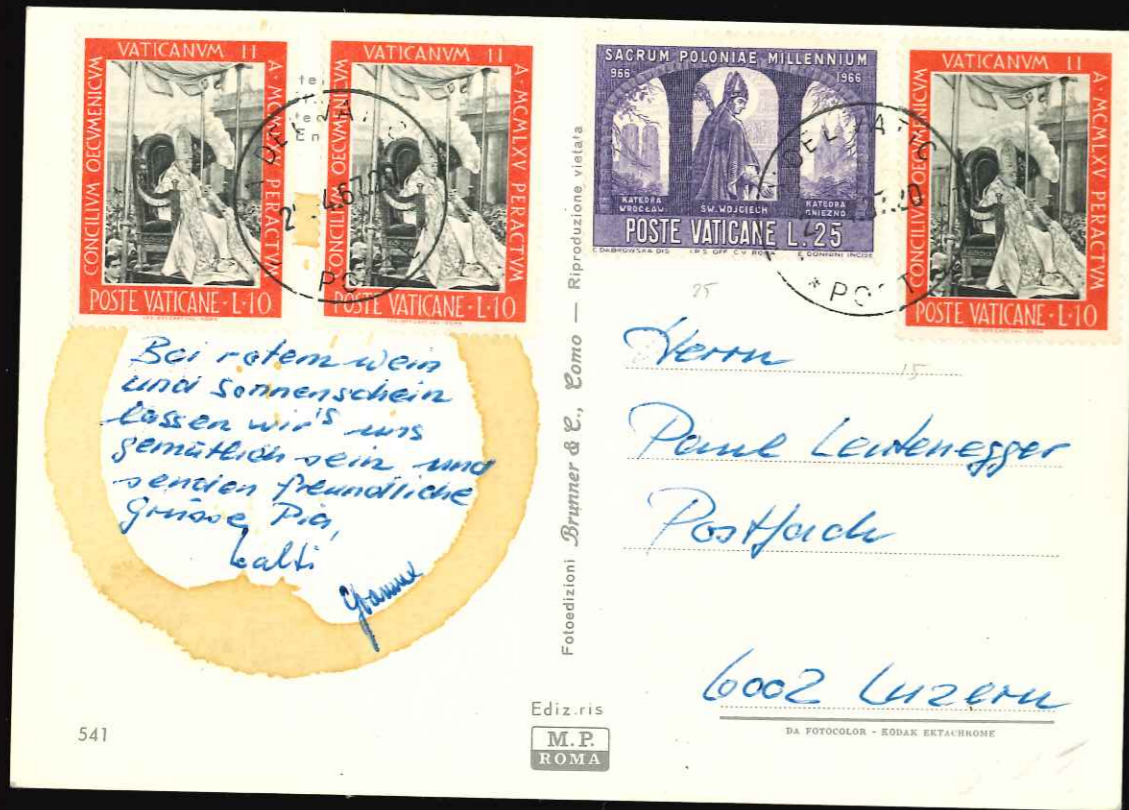 VATICANVM II
CONCILIVM OECVMENICVM
A · MCMLXV PERACTVM
POSTE VATICANE · L·10
VATICANVM II
CONCILIVM OECVMENICVM
A · MCMLXV PERACTVM
POSTE VATICANE · L·10
SACRUM POLONIAE MILLENNIUM
966
1966
KATEDRA WROCŁAW
ŚW. WOJCIECH
KATEDRA GNIEZNO
POSTE VATICANE L. 25
VATICANVM II
CONCILIVM OECVMENICVM
A · MCMLXV PERACTVM
POSTE VATICANE · L·10
Bei rotem wein
und sonnenschein
lassen wir's uns
gemütlich sein und
senden freundliche
Grüsse Pia,
Fotoedizioni Brunner & C., Como — Riproduzione vietata
25
15
Herrn
Paul Leutenegger
Postfach
6002 Luzern
DA FOTOCOLOR - KODAK EKTACHROME
541
Ediz.ris
M.P.
ROMA